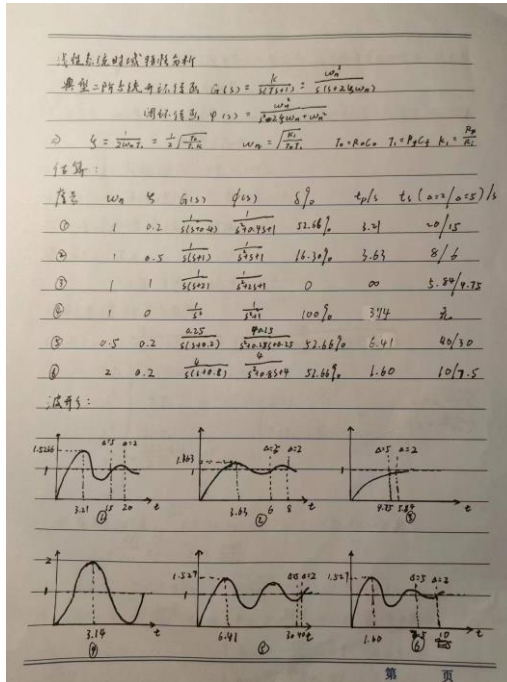 线性系统时域特性分析
典型二阶系统开环传函 G(s) = K/s(Ts+1) = ωn²/s(s+2ζωn)
闭环传函 φ(s) = ωn²/s²+2ζωn+ωn²
估算:
序号 ωn ζ G(s) φ(s) δ% tp/s ts(Δ=2/Δ=5)/s
① 1 0.2 1/s(s+0.4) 1/s²+0.4s+1 52.66% 3.21 20/15
② 1 0.5 1/s(s+1) 1/s²+s+1 16.30% 3.63 8/6
③ 1 1 1/s(s+2) 1/s²+2s+1 0 ∞ 5.84/4.75
④ 1 0 1/s² 1/s²+1 100% 3.14 无
⑤ 0.5 0.2 0.25/s(s+0.2) 52.66% 6.41 40/30
⑥ 2 0.2 4/s(s+0.8) 4/s²+0.8s+4 52.66% 1.60 10/7.5
波形:
1.5266 1 Δ=5 Δ=2 3.21 15 20 t ①
1 Δ=5 Δ=2 3.63 6 8 t ②
1 Δ=5 Δ=2 4.75 5.84 t ③
2 1 3.14 t ④
1.527 1 Δ=2 6.43 30 40 t ⑤
1.527 1 Δ=5 Δ=2 1.60 10 t ⑥
第 页